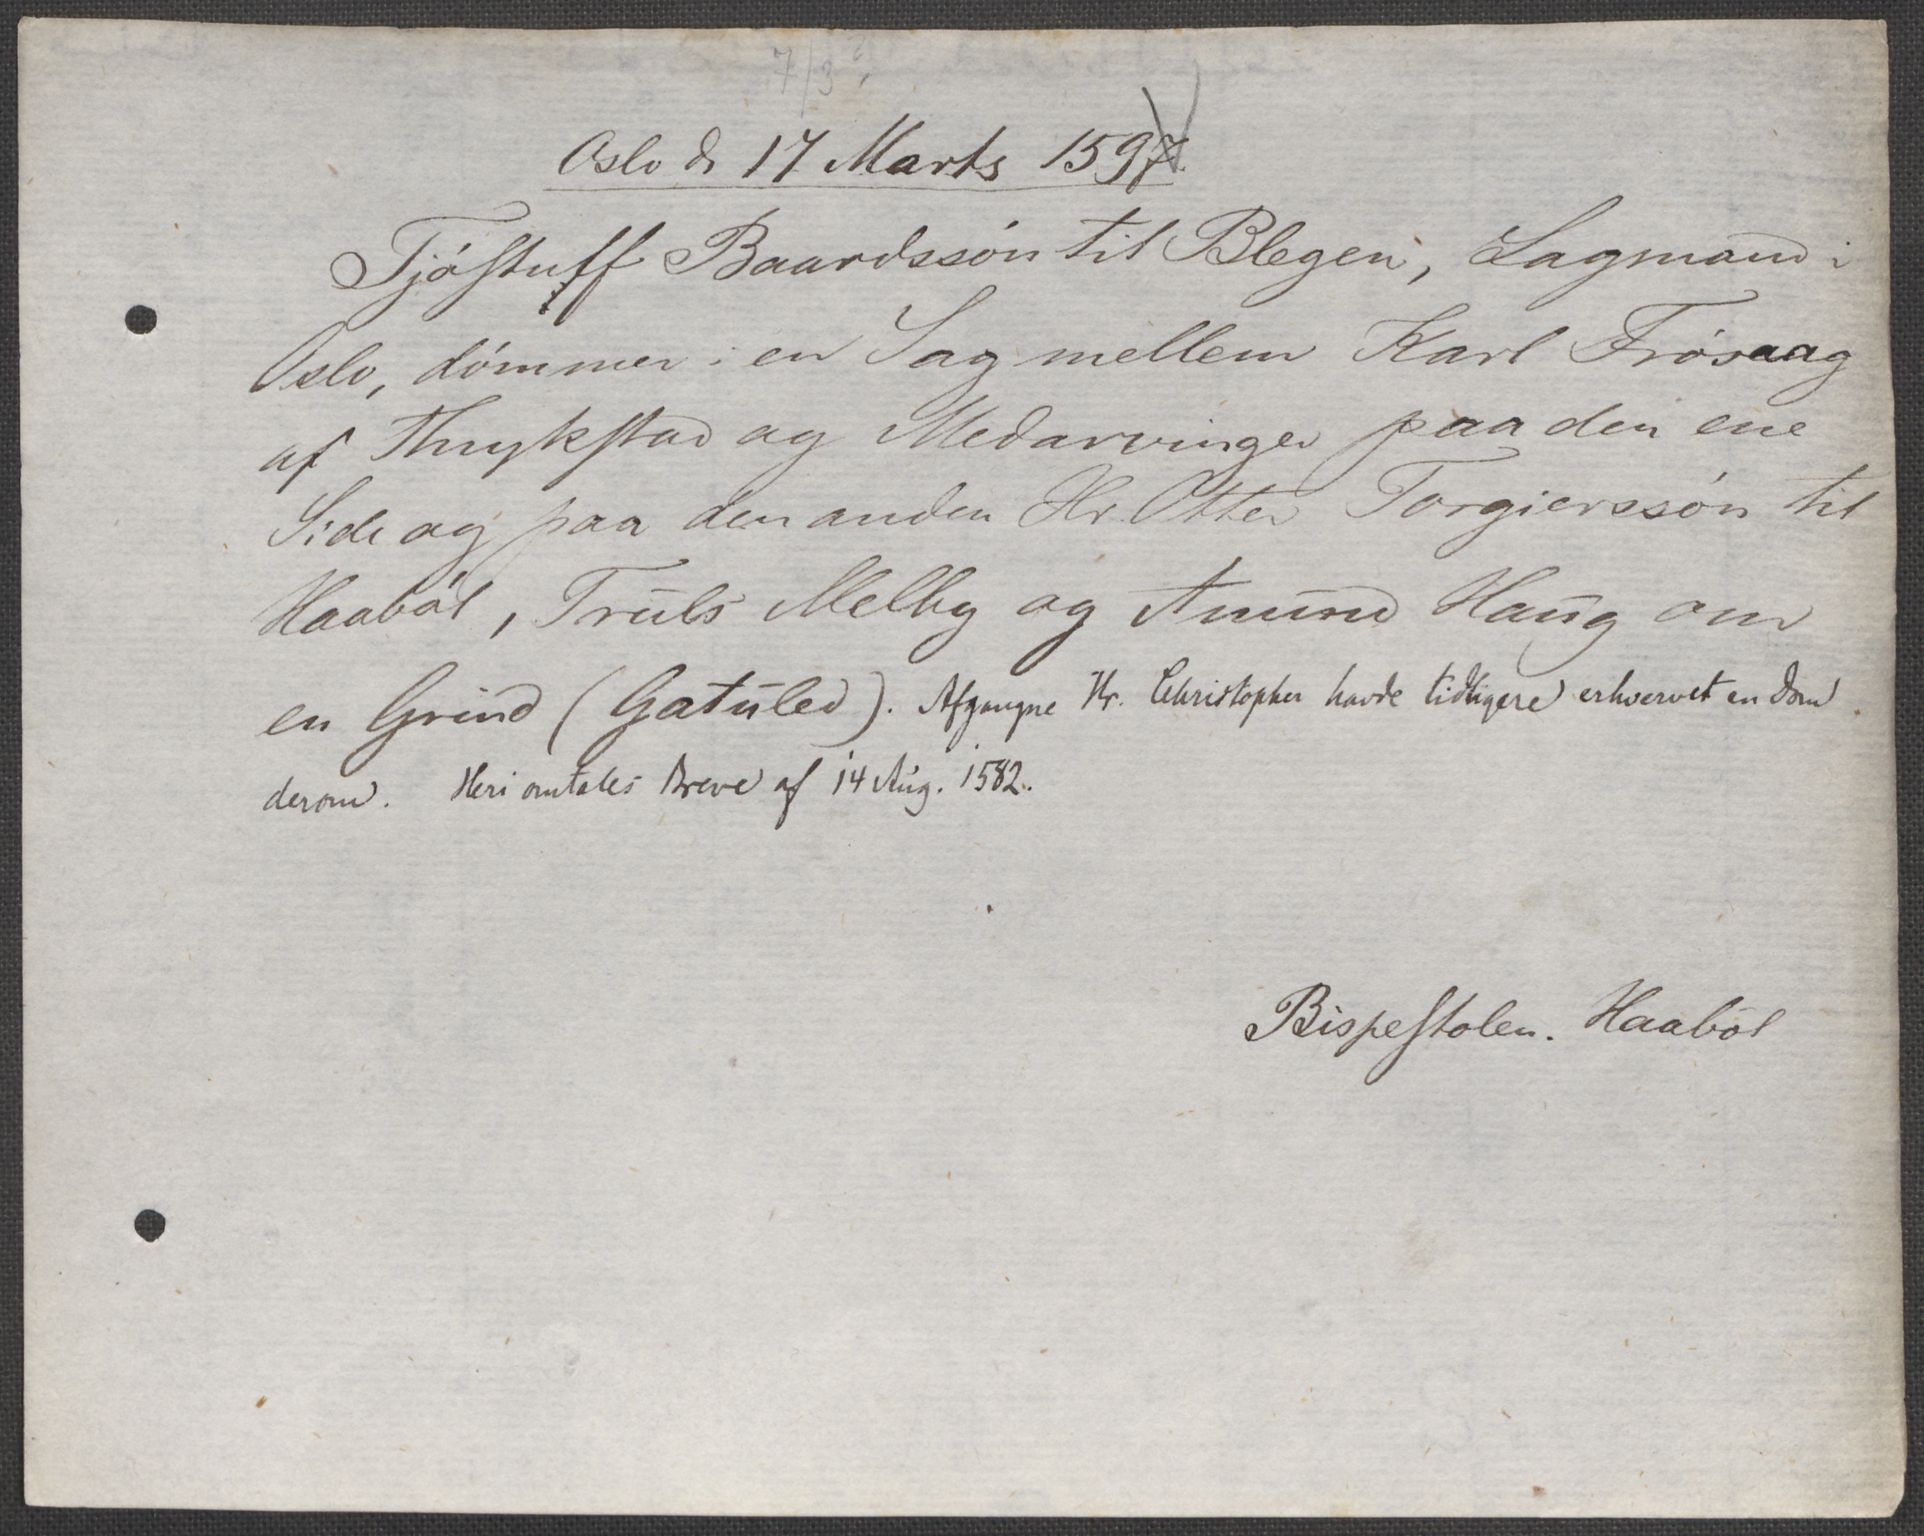 7/3
Oslo d. 17 Marts 1597.
Tjøstuff Baardssøn til Blegen, Lagmand i
Oslo, dømmer i en Sag mellem Karl Frøsaag
af Thrykstad og Medarvinger paa den ene
Side og paa den anden Hr. Otter Torgierssøn til
Haabøl, Truls Melby og Amund Haug om
en Grind (Gatuled). Afgangne Hr. Christopher havde tidligere erhvervet en Dom
derom. Heri omtales Breve af 14 Aug. 1582.
Bispestolen. Haabøl